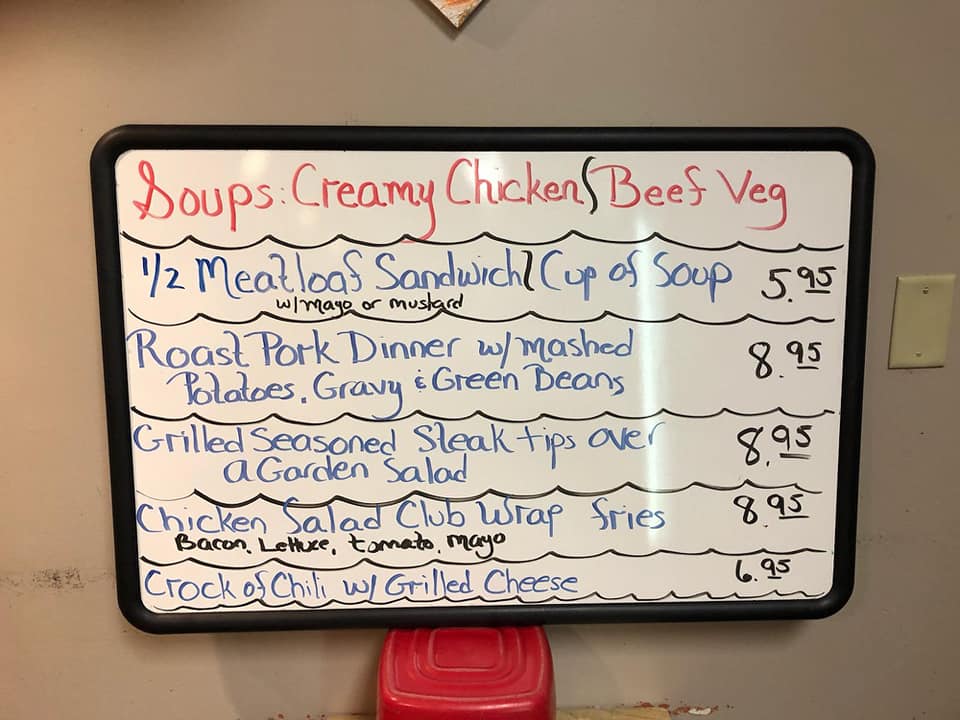 Soups: Creamy Chicken / Beef Veg
1/2 Meatloaf Sandwich / Cup of Soup 5.95
w/mayo or mustard
Roast Pork Dinner w/mashed 8.95
Potatoes, Gravy & Green Beans
Grilled Seasoned Steak tips over 8.95
a Garden Salad
Chicken Salad Club Wrap fries 8.95
Bacon, Lettuce, tomato, mayo
Crock of Chili w/ Grilled Cheese 6.95